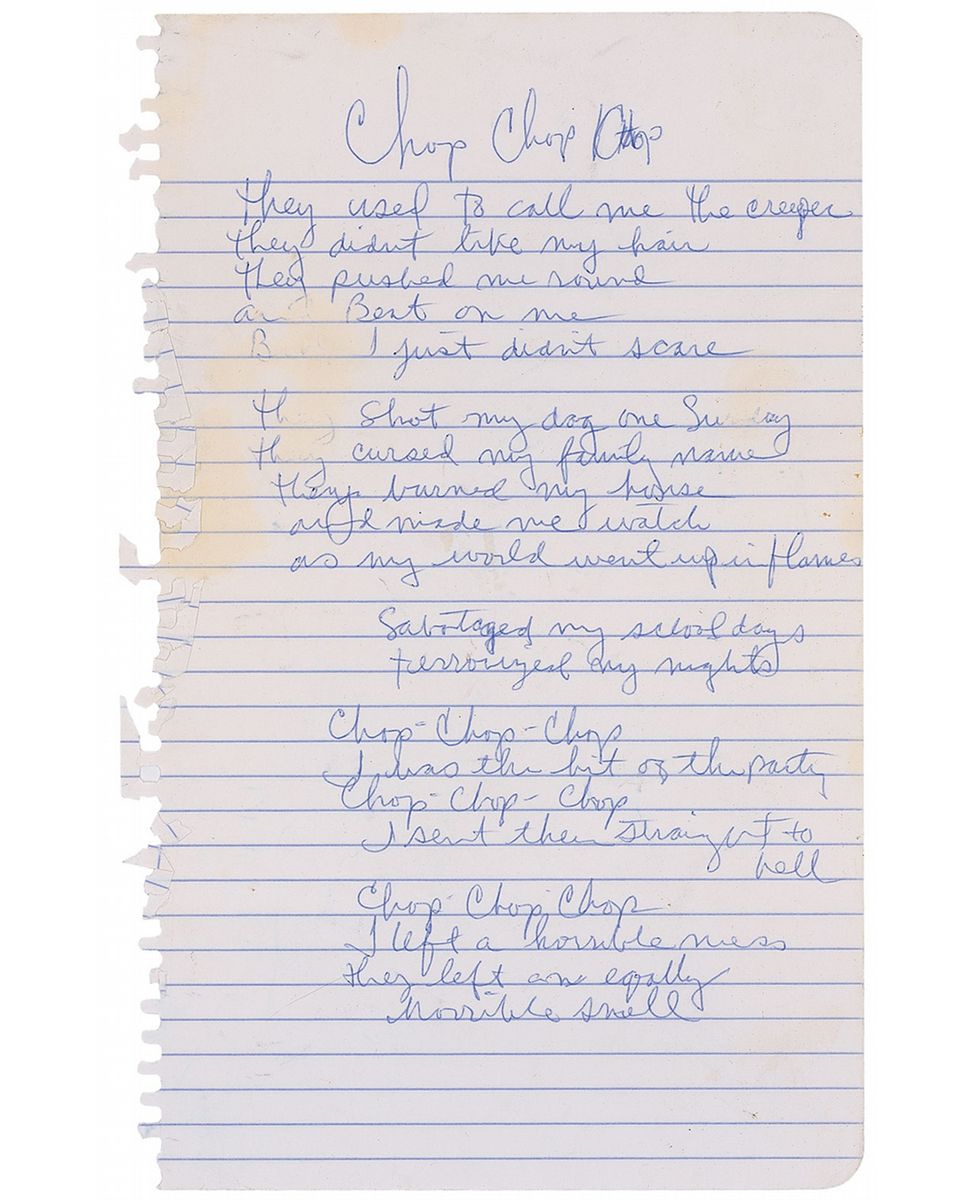 Chop Chop Chop
They used to call me the creeper
they didn't like my hair
they pushed me round
an Beat on me
B I just didn't scare
th Shot my dog one Su ay
they cursed my family name
they burned my house
and made me watch
as my world went up in flames
Sabotaged my school days
terrorized my nights
Chop-Chop-Chop
I was the hit of the party
Chop-Chop-Chop
I sent them straight to
hell
Chop-Chop Chop
I left a horrible mess
they left an equally
horrible smell